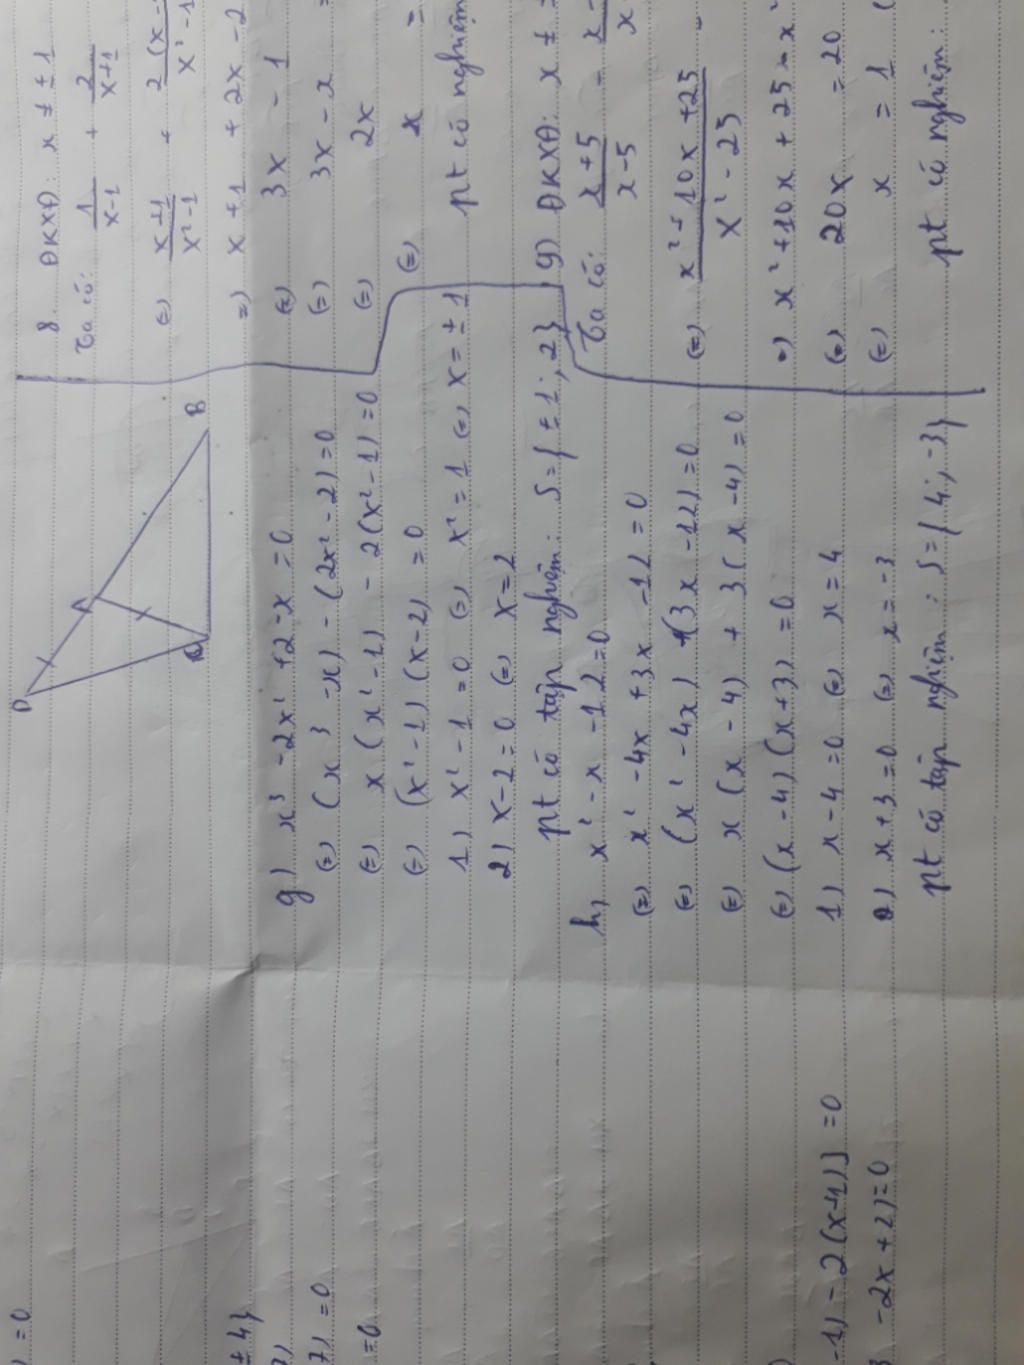 = 0
± 4}
7) = 0
= 0
-1) - 2(x+1)] = 0
-2x + 2) = 0
D
A
B
g) x³ - 2x² + 2 - x = 0
(=) (x³ - x) - (2x² - 2) = 0
(=) x(x² - 1) - 2(x² - 1) = 0
(=) (x² - 1)(x - 2) = 0
1) x² - 1 = 0 (=) x² = 1 (=) x = ± 1
2) x - 2 = 0 (=) x = 2
pt có tập nghiệm: S = { ± 1; 2}
h, x² - x - 12 = 0
(=) x² - 4x + 3x - 12 = 0
(=) (x² - 4x) + (3x - 12) = 0
(=) x(x - 4) + 3(x - 4) = 0
(=) (x - 4)(x + 3) = 0
1) x - 4 = 0 (=) x = 4
2) x + 3 = 0 (=) x = -3
pt có tập nghiệm: S = {4; -3}
8. ĐKXĐ: x ≠ ± 1
Ta có: 1/x-1 + 2/x+1
(=) x+1/x²-1 + 2(x-/x²-1
=) x + 1 + 2x - 2
(=) 3x - 1
(=) 3x - x =
(=) 2x
(=) x =
pt có nghiệm
9) ĐKXĐ: x ±
Ta có: x+5/x-5 - x-/x
(=) x² + 10x + 25/x² - 25 -
=) x² + 10x + 25 - x²
(=) 20x = 20
(=) x = 1 (
pt có nghiệm: